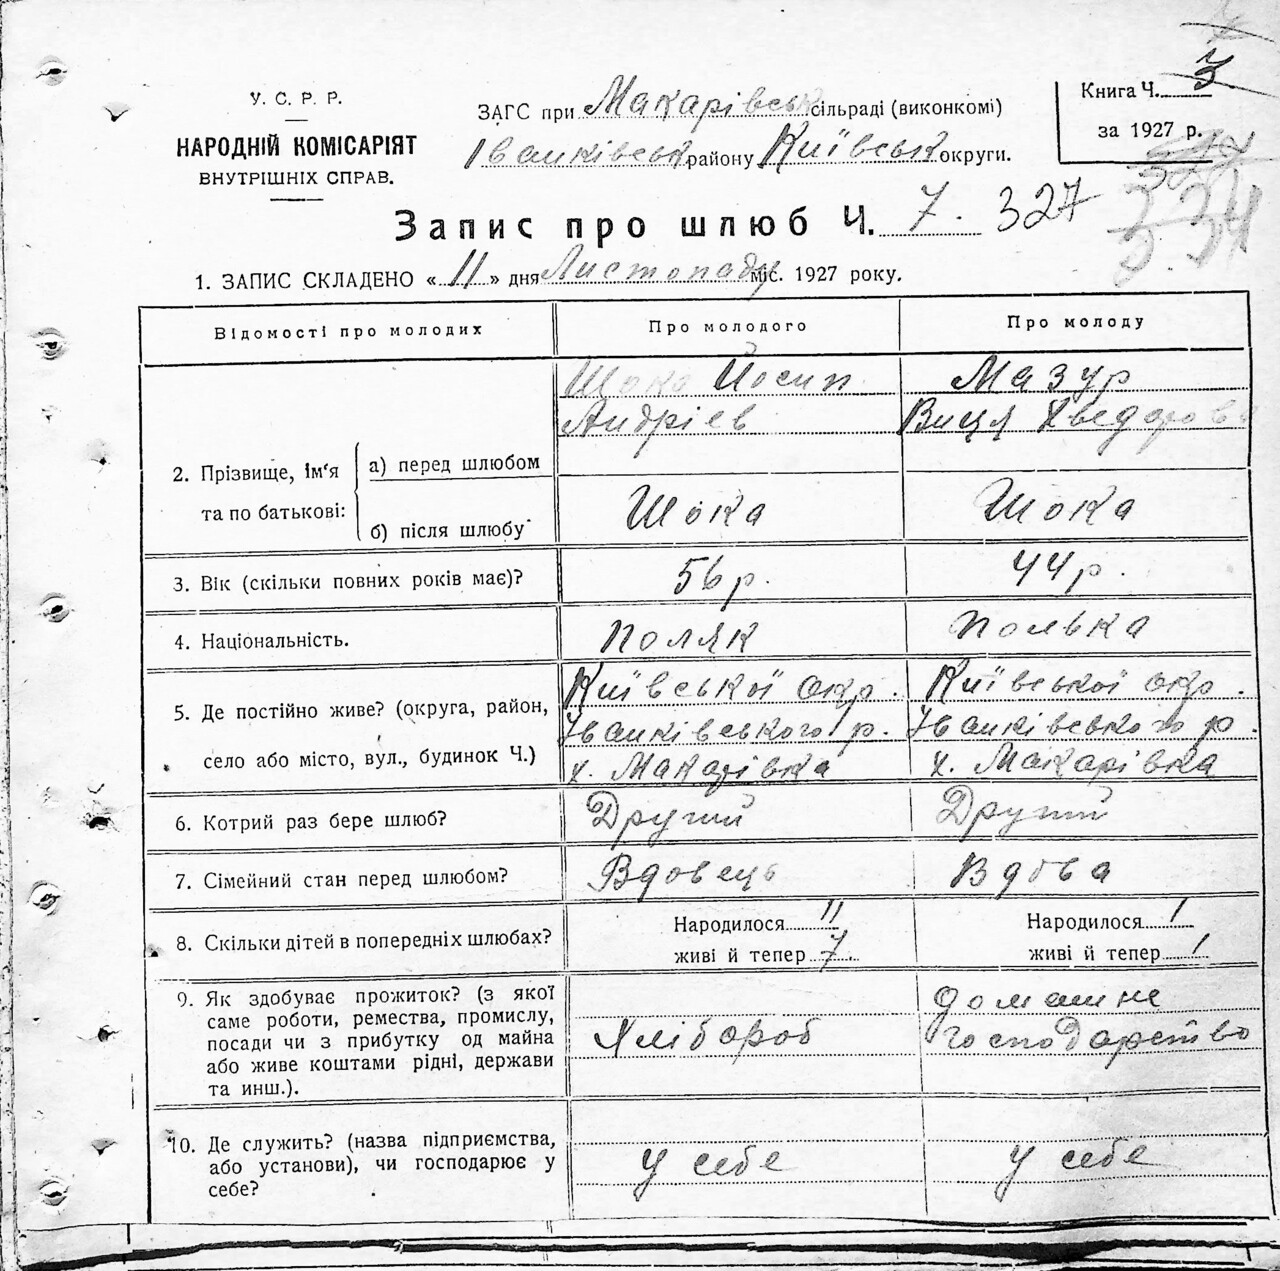 У. С. Р. Р.
НАРОДНІЙ КОМІСАРІЯТ
ВНУТРІШНІХ СПРАВ.
ЗАГС при Макарівськ сільраді (виконкомі)
Іванківськ району Київськ округи.
Книга Ч. 3
за 1927 р.
Запис про шлюб Ч. 7. 327
1. ЗАПИС СКЛАДЕНО « 11 » дня Листопаду міс. 1927 року.
Відомості про молодих Про молодого Про молоду
2. Прізвище, ім'я та по батькові:
а) перед шлюбом
Шока Йосип Андріев
Мазур
Хведоровн
б) після шлюбу
Шока Шока
3. Вік (скільки повних років має)? 56 р. 44 р.
4. Національність. Поляк Полька
5. Де постійно живе? (округа, район,
село або місто, вул., будинок Ч.)
Київської окр.
Іванківського р.
х. Макарівка
Київської окр.
Іванківського р.
х. Макарівка
6. Котрий раз бере шлюб? Другий Другий
7. Сімейний стан перед шлюбом? Вдовець Вдова
8. Скільки дітей в попередніх шлюбах?
Народилося 11
живі й тепер 7.
Народилося 1
живі й тепер 1
9. Як здобуває прожиток? (з якої
саме роботи, ремества, промислу,
посади чи з прибутку од майна
або живе коштами рідні, держави
та инш.).
Хлібороб
домашне
господарство
10. Де служить? (назва підприємства,
або установи), чи господарює у
себе?
у себе у себе